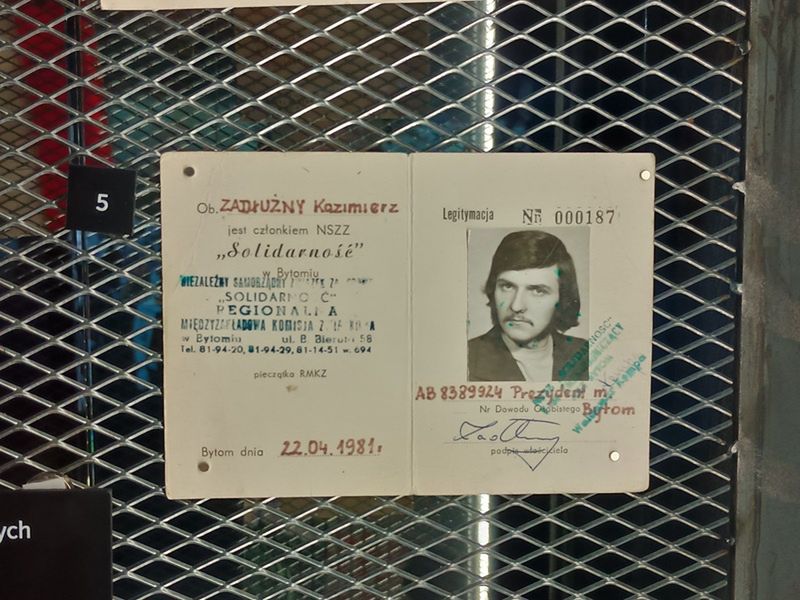 5
Ob. ZADŁUŻNY Kazimierz
jest członkiem NSZZ
„Solidarność”
w Bytomiu
NIEZALEŻNY SAMORZĄDNY
„SOLIDARNOŚĆ”
REGIONALNA
MIĘDZYZAKŁADOWA KOMISJA
w Bytomiu ul. B. Bieruta 58
Tel. 81-94-20, 81-94-29, 81-14-51 w. 694
pieczątka RMKZ
Bytom dnia 22.04.1981r.
Legitymacja Nr 000187
AB 8389924 Prezydent m.
Nr Dowodu Osobistego Bytom
podpis właściciela
ych